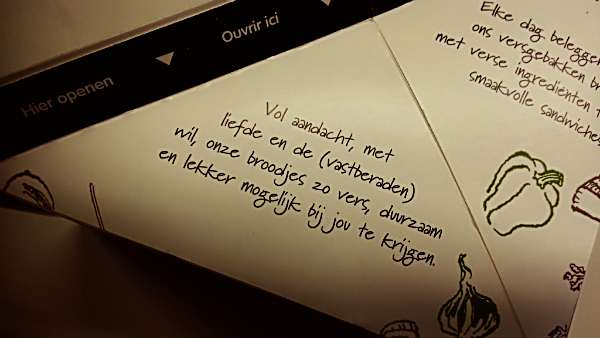 Hier openen
Ouvrir ici
Vol aandacht, met
liefde en de (vastberaden)
wil, onze broodjes zo vers, duurzaam
en lekker mogelijk bij jou te krijgen.
Elke dag
ons versgebakken
met verse ingrediënten
smaakvolle sandwiches